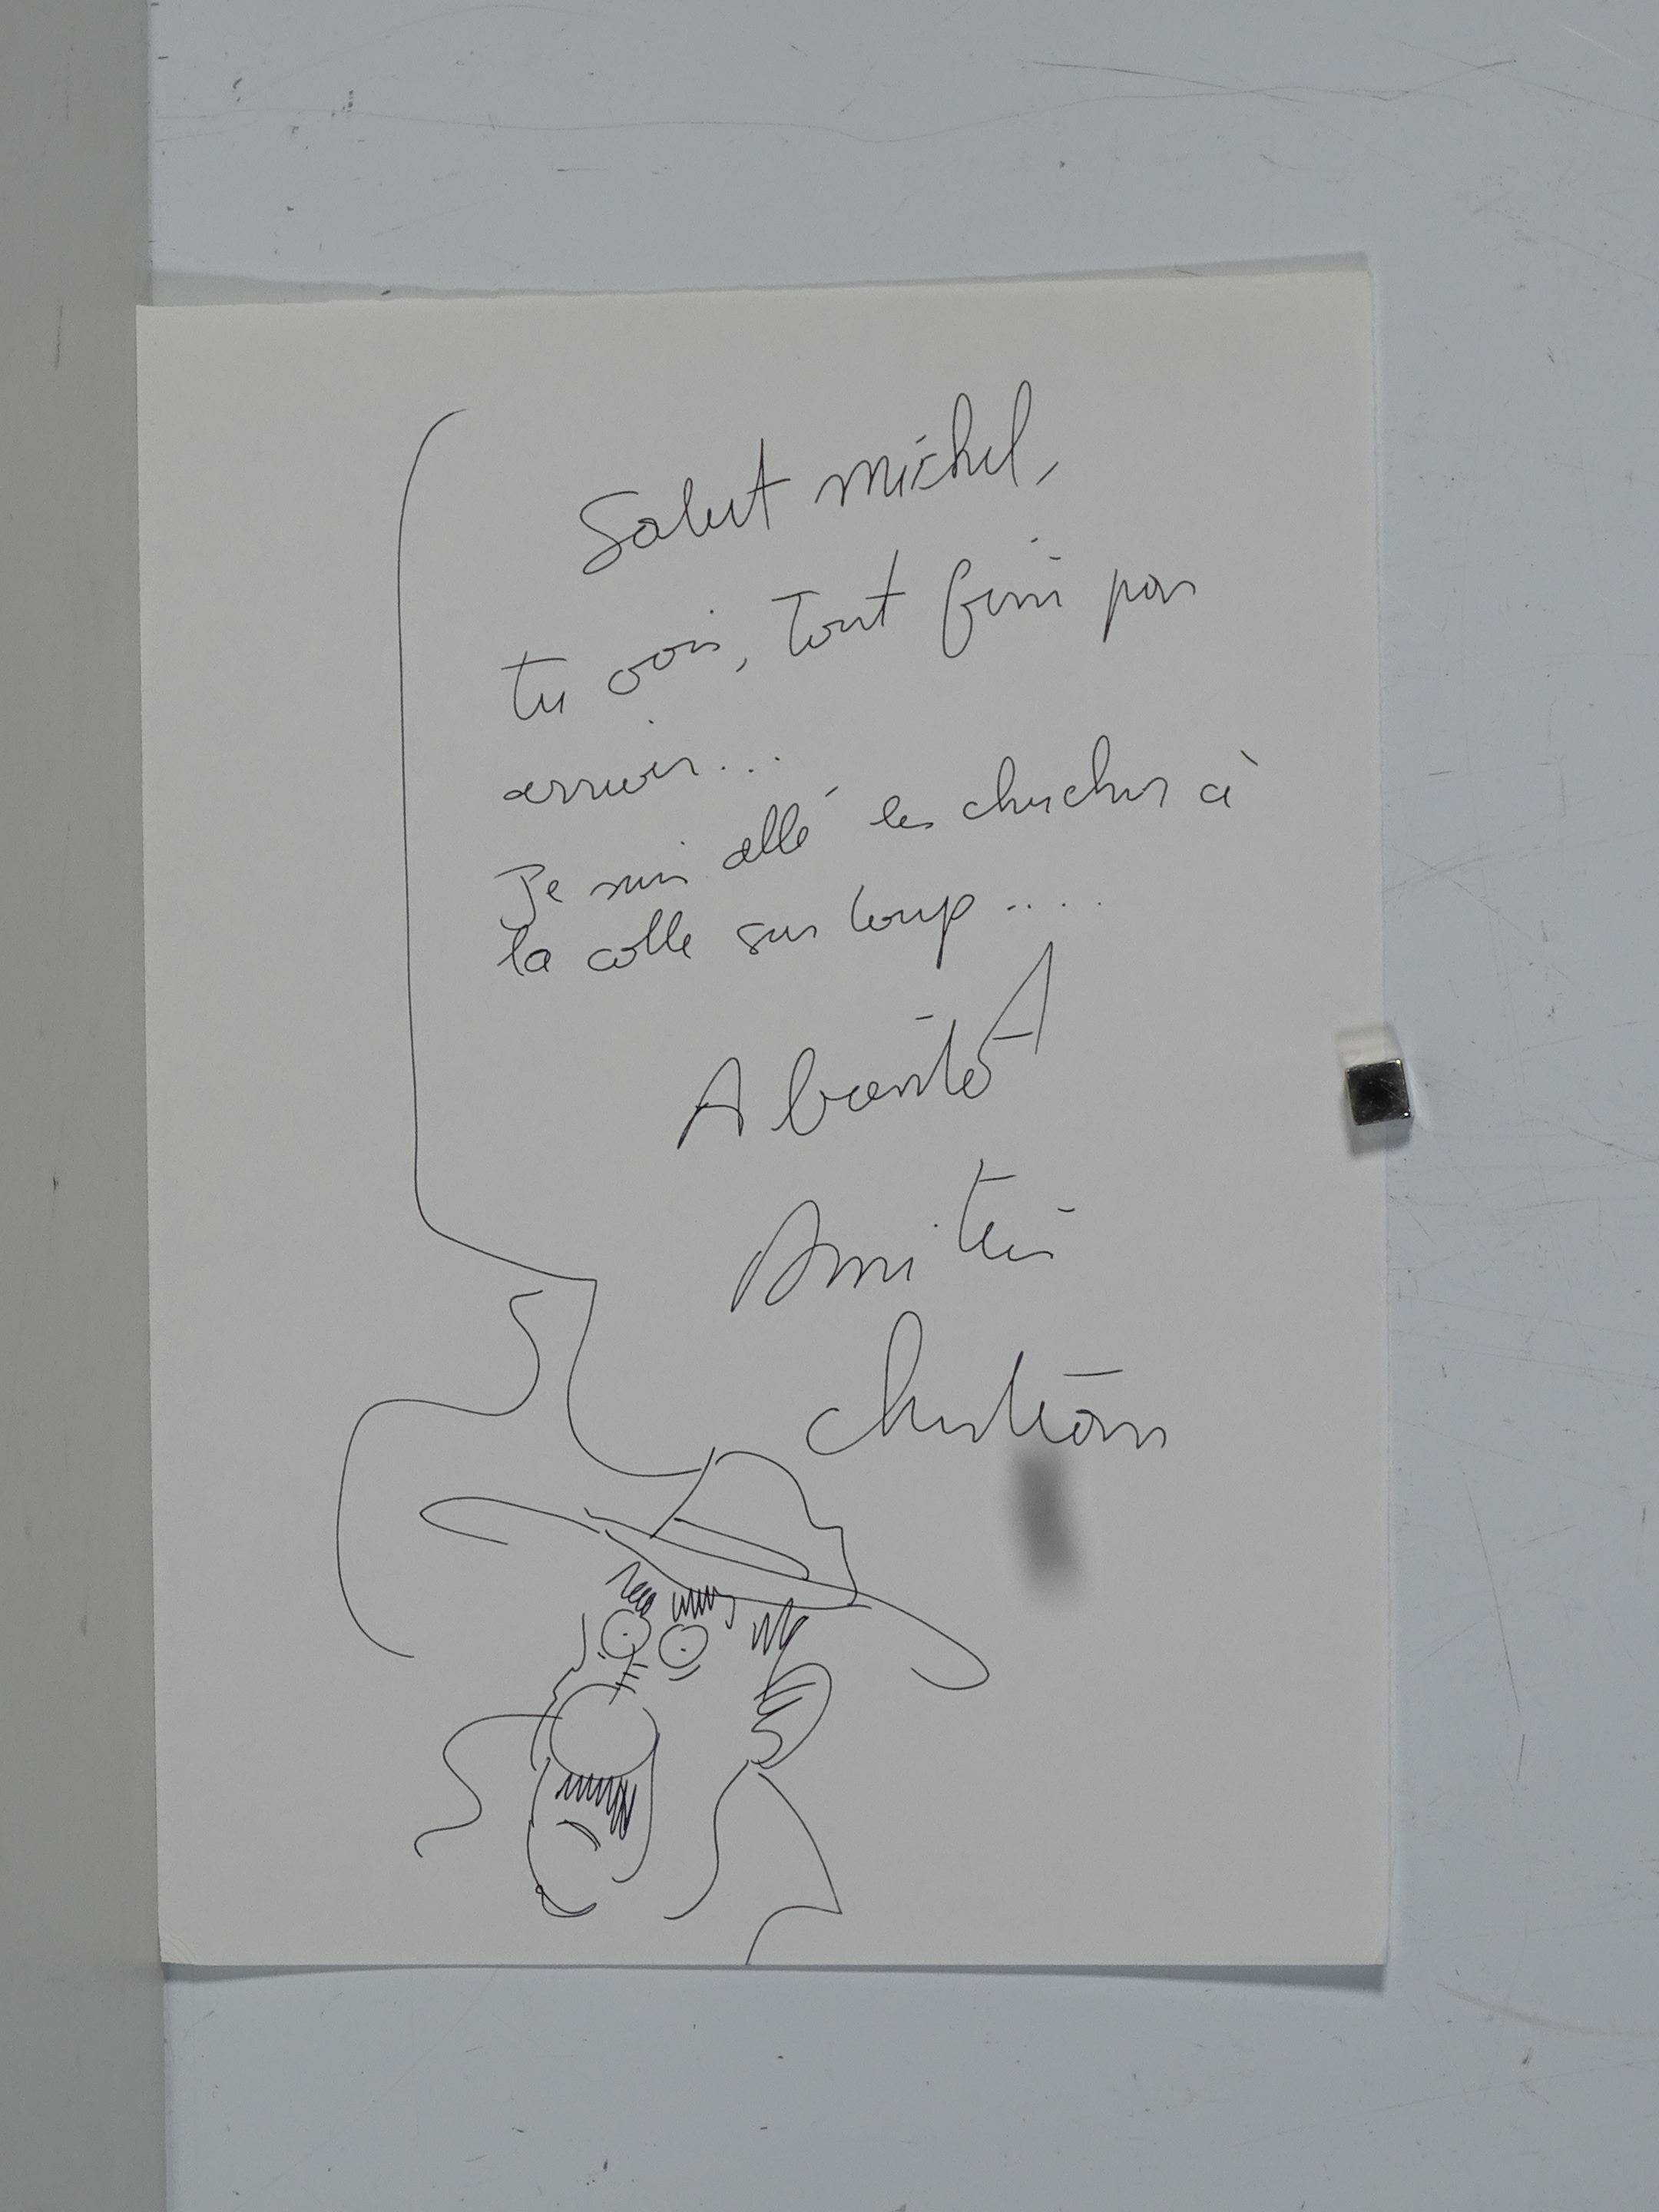 Salut michel,
tu vois, Tout fini par
arriver...
Je suis allé les chercher à
la colle sur loup....
A bientôt
Amitiés
christian